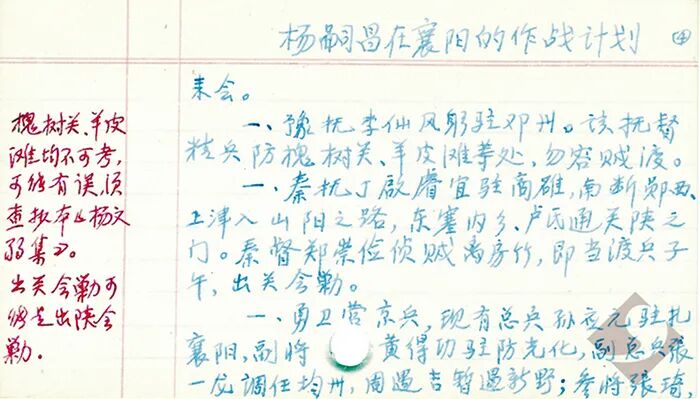 杨嗣昌在襄阳的作战计划 ㊃
来会。
一、豫抚李仙风躬驻邓州。该抚督
精兵防槐树关、羊皮滩等处，勿容贼渡。
一、秦抚丁启睿宜驻商雒，南断郧西、
上津入山阳之路，东塞内乡、卢氏通关陕之
门。秦督郑崇俭侦贼离房竹，即当渡兵子
午，出关会勦。
一、勇卫营京兵，现有总兵孙应元驻扎
襄阳，副将 黄得功驻防光化，副总兵张
一龙调任均州，周遇吉暂遏新野；参将张琦，
槐树关、羊皮
滩均不可考，
可能有误，须
查抄本及杨文
弱集》。
出关会勦可
能是出陕会
勦。